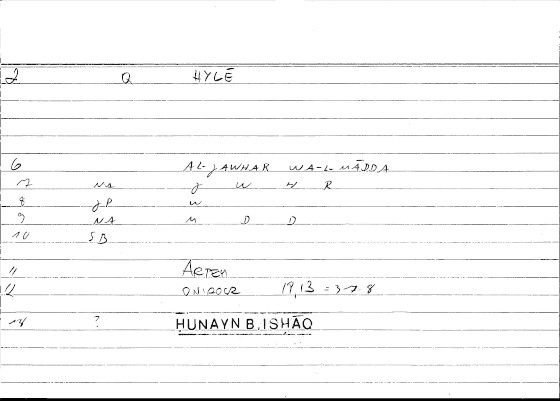 2 Q HYLĒ
6 AL-JAWHAR WA-L-MĀDDA
7 NA J W H R
8 JP W
9 NA M D D
10 SB
11 ARTEM
12 ONIROCR 19,13 = 37.8
14 ? HUNAYN B. ISḤĀQ